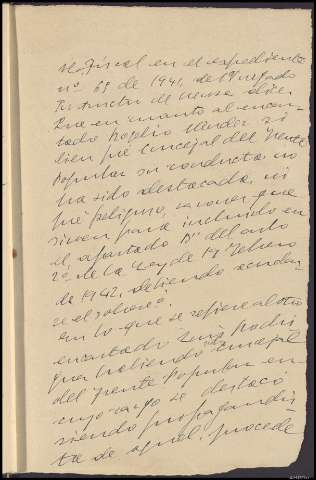 El Fiscal en el expediente
nº 69 de 1941, del Juzgado
Instructor de Huesca dice:
Que en cuanto al encar-
tado Rogelio Mendez si
bien fué concejal del Frente
Popular su conducta no
ha sido destacada, ni
fué peligroso, razones que
sirven para incluirlo en
el apartado del artº
2º de la Ley de 19 Febrero
de 1942, debiendo sendar
se el sobreseº.
En lo que se refiere al otro
encartado Luis Rodri
guez habiendo sido concejal
del Frente Popular en
cuyo cargo se destacó
siendo propagandis
ta de aquel, procede